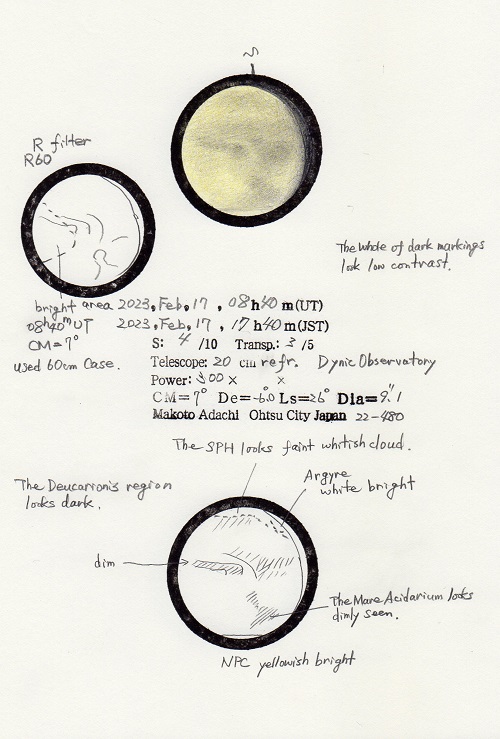 S
R filter
R60
The whole of dark markings
look low contrast.
bright area
2023, Feb, 17, 08h40m(UT)
08h40mUT
2023, Feb, 17, 17h40m(JST)
CM=7°
S: 4/10 Transp.: 3/5
used 60cm Case.
Telescope: 20 cm refr. Dynic Observatory
Power: 300 x x
CM=7° De=-6.0° Ls=26° Dia=9.1"
Makoto Adachi Ohtsu City Japan 22-480
The SPH looks faint whitish cloud.
The Deucarionis region
looks dark.
Argyre
white bright
dim
The Mare Acidarium looks
dimly seen.
NPC yellowish bright